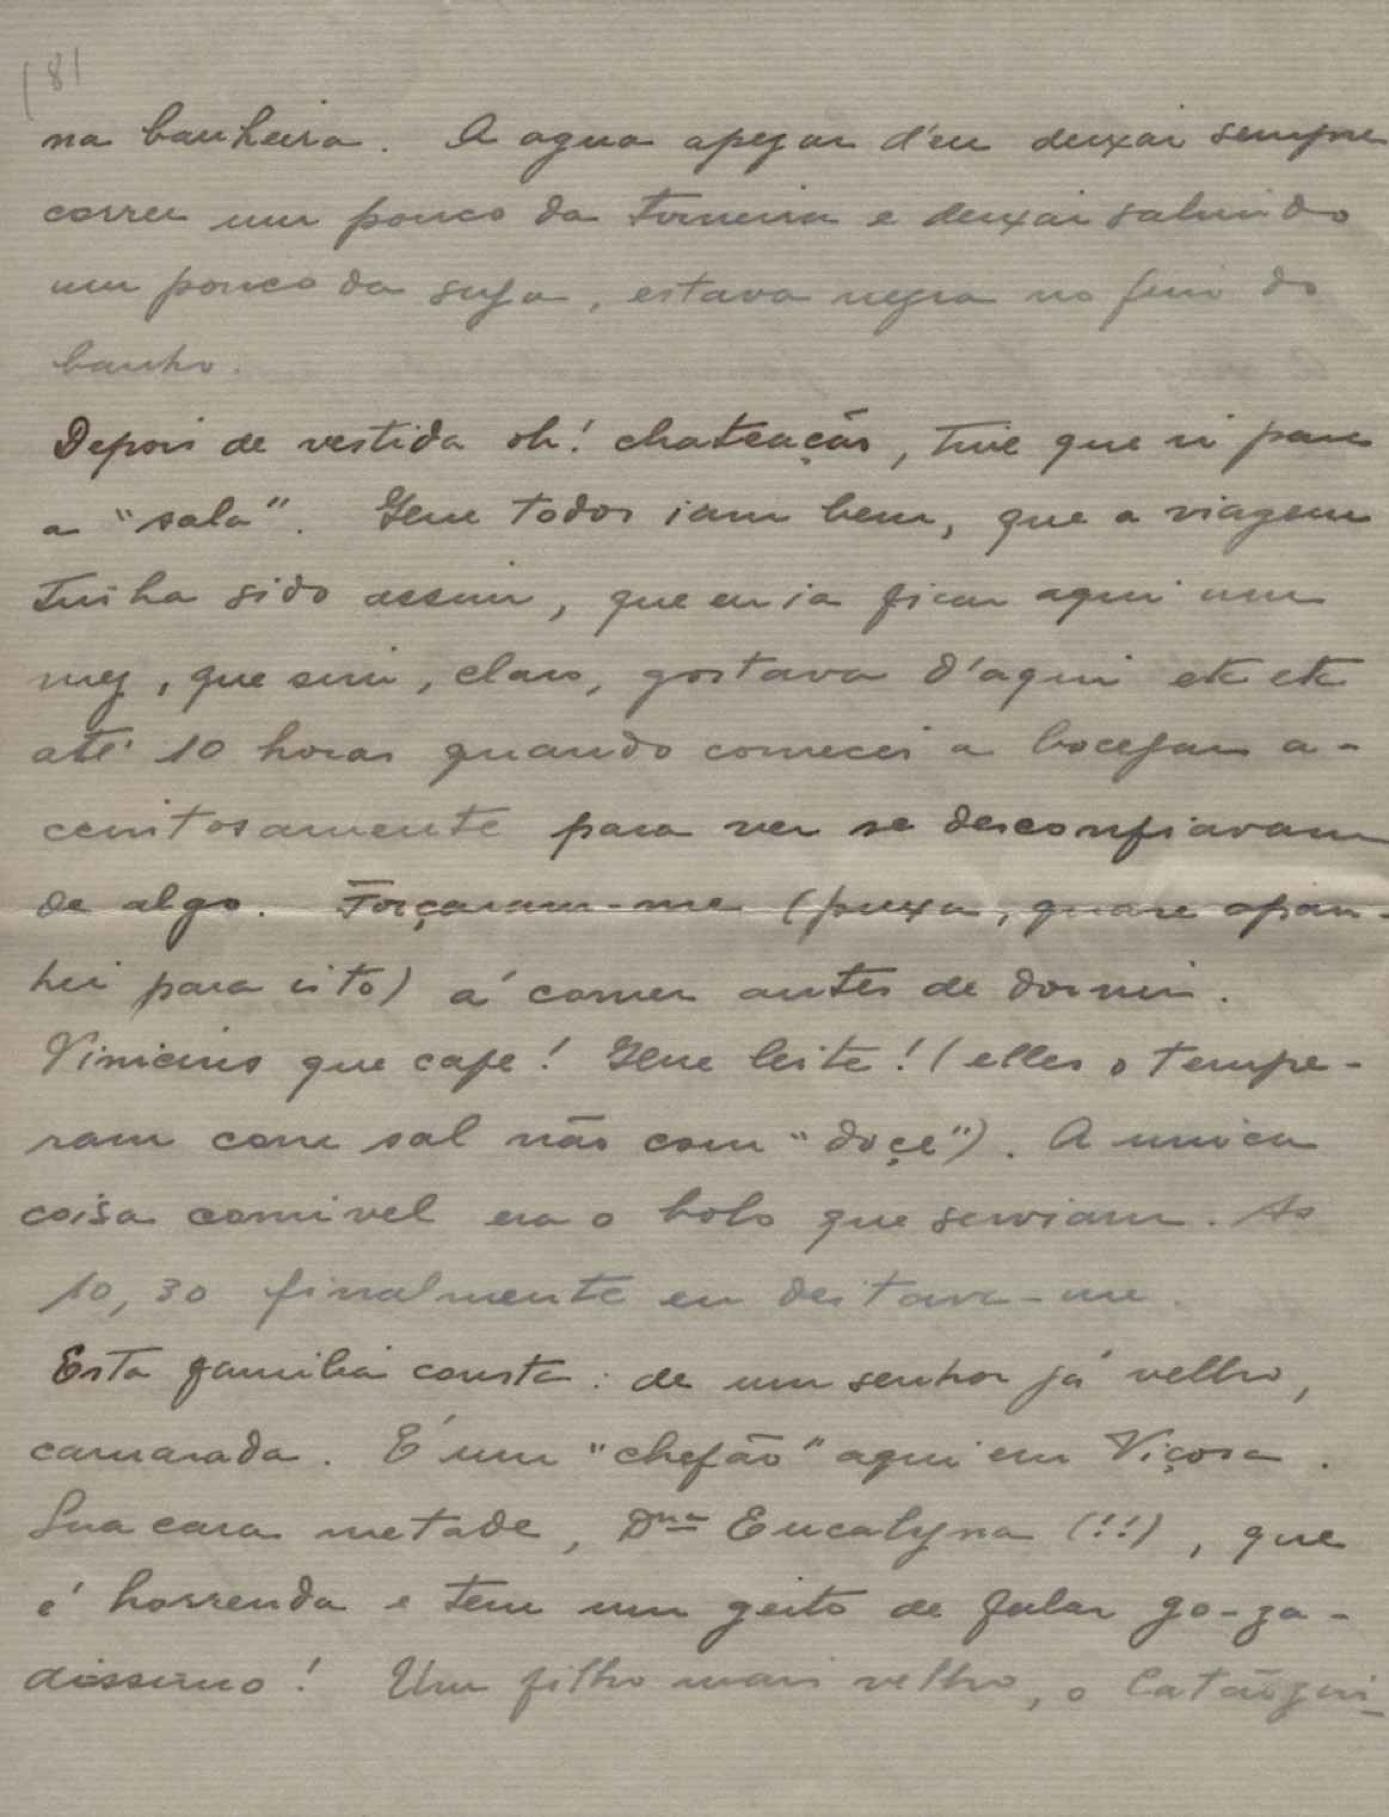 (8)
na banheira. A agua apezar d'eu deixar sempre
correr um pouco da torneira e deixar sahindo
um pouco da suja, estava negra no fim do
banho.
Depois de vestida oh! chateação, tive que ir para
a "sala". Que todos iam bem, que a viagem
tinha sido assim, que eu ia ficar aqui um
mez, que sim, claro, gostava d'aqui etc etc
até 10 horas quando comecei a bocejar a-
cintosamente para ver se desconfiavam
de algo. Forçaram-me (puxa, quase apan-
hei para isto) á comer antes de dormir.
Vinicius que cafe! Que leite! (elles o tempe-
ram com sal não com "doçe"). A unica
coisa comivel era o bolo que serviam. As
10,30 finalmente eu deitava-me.
Esta familia consta: de um senhor já velho,
camarada. É um "chefão" aqui em Viçosa.
Sua cara metade, Dna Eucalyna (!!), que
é horrenda e tem um geito de falar go-za-
dissimo! Um filho mais velho, o